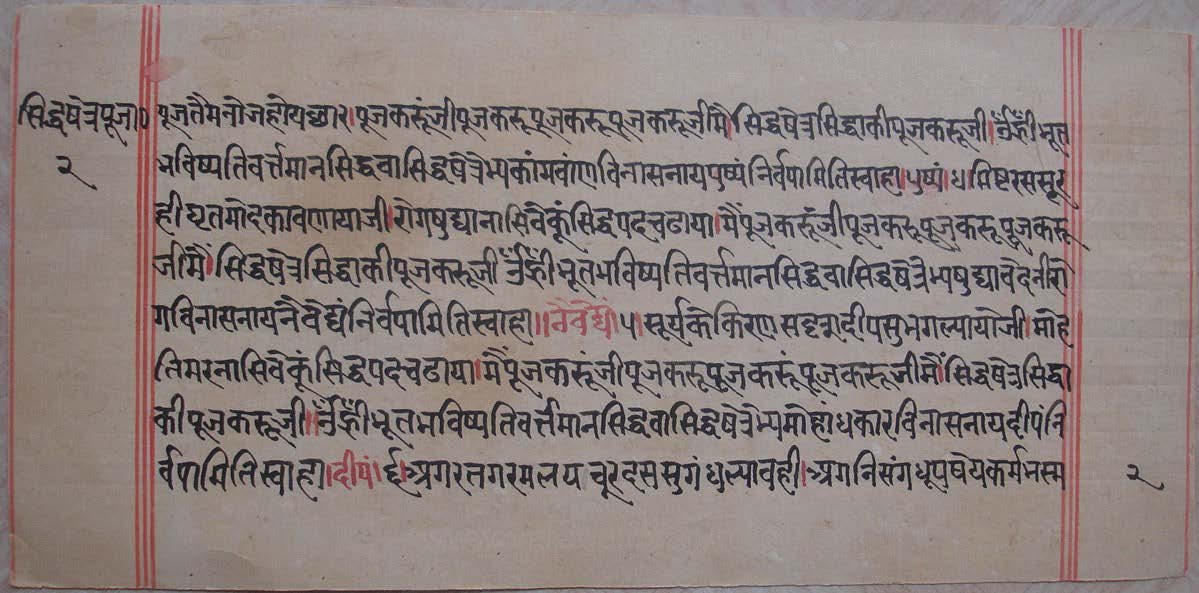 सिद्धषेत्रपूजा०
२
पूजतैमनोजहोयछार।पूजकरूंजीपूजकरूपूजकरूपूजकरूजीमैं।सिद्धषेत्रसिद्धाकीपूजकरूजी।ॐह्रीँभूत
भविष्यतिवर्त्तमानसिद्धवासिद्धषेत्रेभ्यकांमवांणविनासनायपुष्पंनिर्वपामितिस्वाहा।पुष्पं।४मिष्टरससूर
हीघृतमोदकावणायाजी।रोगषुद्यानासिवेकूंसिद्धपदचढाया।मैंपूजकरूंजीपूजकरूपूजकरूपूजकरू
जीमैं।सिद्धषेत्रसिद्धाकीपूजकरूजीॐह्रीँभूतभविष्यतिवर्त्तमानसिद्धवासिद्धषेत्रेभ्यषुद्यावेदनीरो
गविनासनायनैवेद्यंनिर्वपामितिस्वाहा।।नैवेद्यं।५।सूर्यकेकिरणसदृशदीपसुभगल्यायोजी।मोह
तिमरनासिवेकूंसिद्धपदचढाया।मैंपूजकरूंजीपूजकरूपूजकरूंपूजकरूजीमैं।सिद्धषेत्रसिद्धा
कीपूजकरूजी।ॐह्रीँभूतभविष्यतिवर्त्तमानसिद्धवासिद्धषेत्रेभ्यमोहाधकारविनासनायदीपंनि
र्वपामितिस्वाहा।दीपं।६।अगरतगरमलयचूरदससुगंधल्यावही।अगनिसंगधूपषेयकर्मभस्म
२